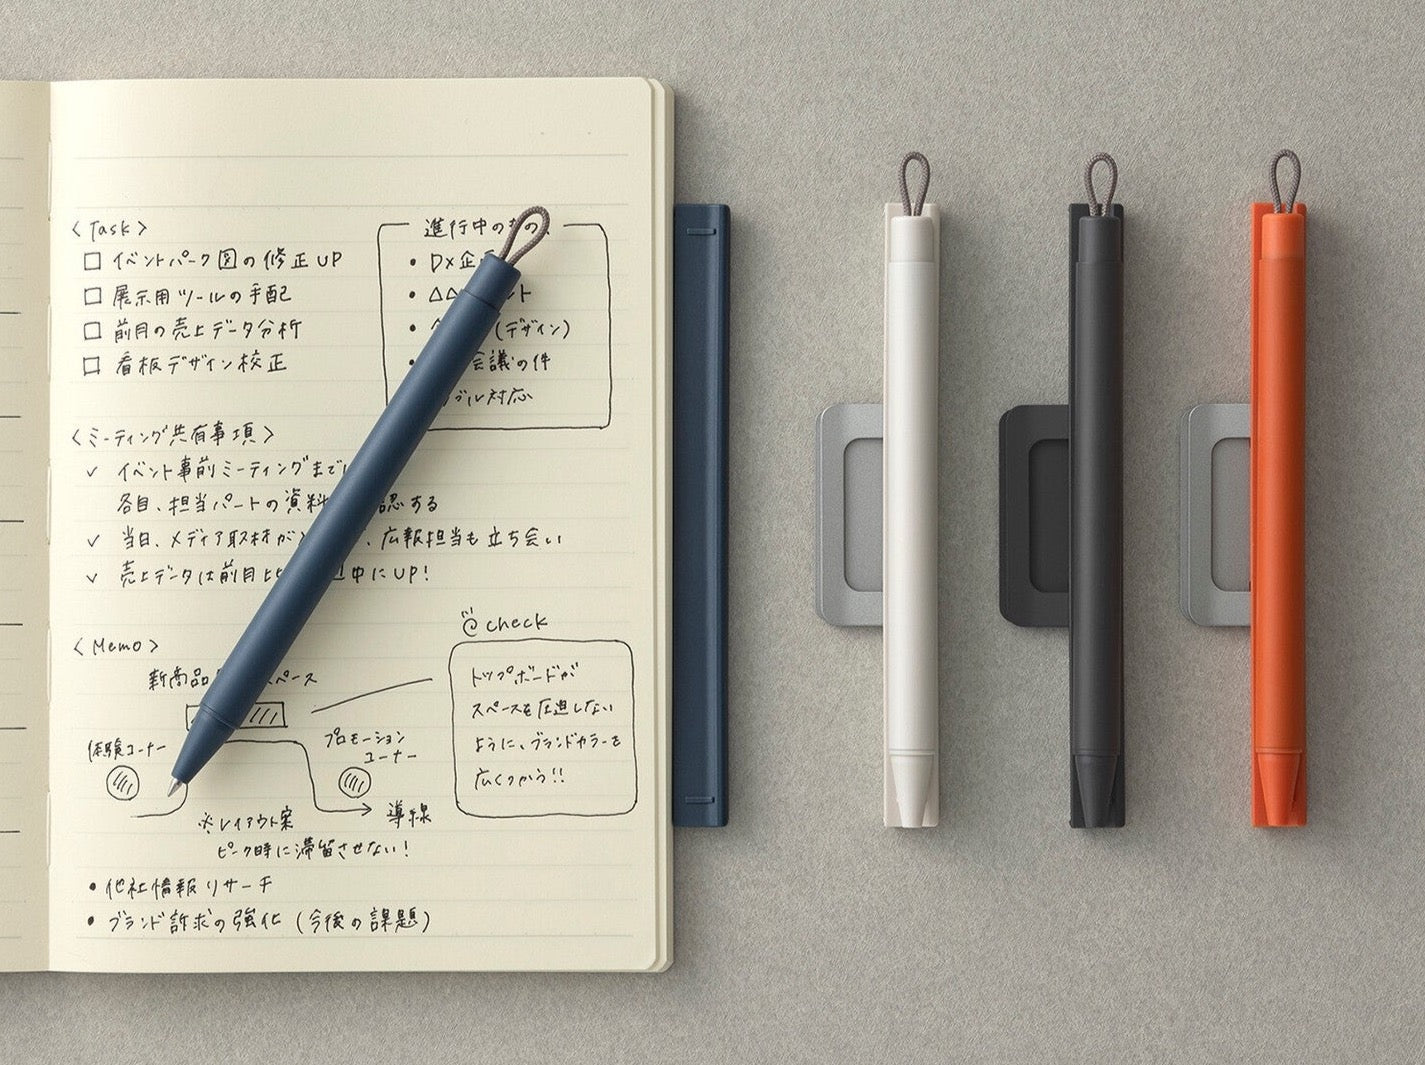 〈Task〉
□ イベントパーク図の修正UP
□ 展示用ツールの手配
□ 前月の売上データ分析
□ 看板デザイン校正
進行中のもの
• DX企
• △△ ント
• (デザイン)
• 会議の件
ブル対応
〈ミーティング共有事項〉
✓ イベント事前ミーティングまで
各自、担当パートの資料 認する
✓ 当日、メディア取材が 、広報担当も立ち会い
✓ 売上データは前月比 中にUP!
〈Memo〉
新商品 スペース
体験コーナー
プロモーション
コーナー
導線
※レイアウト案
ピーク時に滞留させない!
check
トップボードが
スペースを圧迫しない
ように、ブランドカラーを
広くつかう!!
• 他社情報リサーチ
• ブランド訴求の強化(今後の課題)